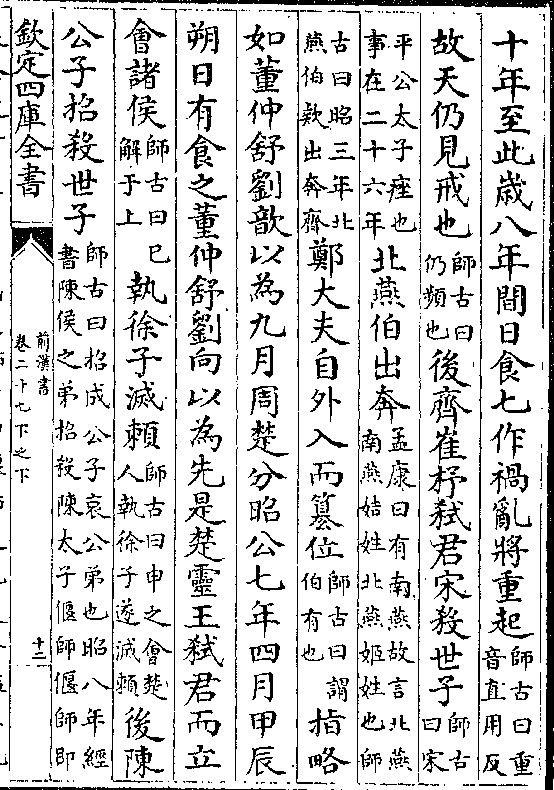 十年至此歲八年間日食七作禍亂將重起師古曰重音直用反
故天仍見戒也師古曰仍頻也後齊崔杼弑君宋殺世子師古曰宋
平公太子痤也事在二十六年北燕伯出奔孟康曰有南燕故言北燕南燕姞姓北燕姬姓也師
古曰昭三年北燕伯欵出奔齊鄭大夫自外入而篡位師古曰謂伯有也指略
如董仲舒劉歆以為九月周楚分昭公七年四月甲辰
朔日有食之董仲舒劉向以為先是楚靈王弑君而立
會諸侯師古曰已解于上執徐子滅賴師古曰申之會楚人執徐子遂滅賴後陳
公子招殺世子師古曰招成公子哀公弟也昭八年經書陳侯之弟招殺陳太子偃師偃師即
欽定四庫全書
前漢書
卷二十七下之下
十二